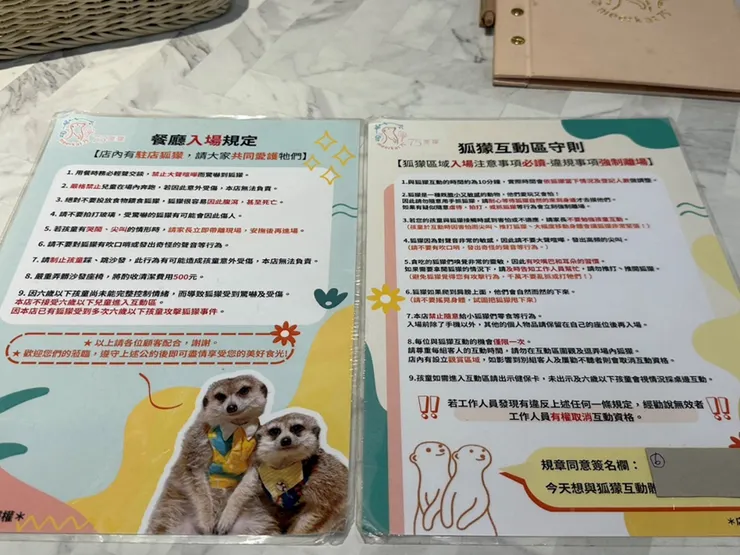 餐廳入場規定
【店內有駐店狐獴，請大家共同愛護牠們】
1. 用餐時務必輕聲交談，禁止大聲喧嘩而驚嚇到狐獴。
2. 嚴格禁止兒童在場內奔跑，若因此意外受傷，本店無法負責。
3. 絕對不要投放食物餵食狐獴，狐獴很容易因此酸瀉，甚至死亡。
4. 請不要拍打玻璃，受驚嚇的狐獴有可能會因此傷人。
5. 若孩童有哭鬧、尖叫的情形時，請家長立即帶離現場，安撫後再進場。
6. 請不要對狐獴有吹口哨或發出奇怪的聲音等行為。
7. 請制止孩童踩、跳沙發，此行為有可能造成孩童意外受傷，本店無法負責。
8. 嚴重弄髒沙發座椅，將酌收清潔費用500元。
9. 因六歲以下孩童尚未能完整控制情緒，而導致狐獴受到驚嚇及受傷。
本店不接受六歲以下兒童進入互動區。
因本店已有狐獴受到多次六歲以下孩童攻擊狐獴事件。
★以上請各位顧客配合，謝謝。
★歡迎您們的蒞臨，遵守上述公約後即可盡情享受您的美好食光!
權*
狐獴互動區守則
【狐獴區域入場注意事項必讀-違規事項強制離場】
1.與狐獴互動的時間約為10分鐘，
2.狐獴是一種既膽小又敏感的動物，他們愛玩又會怕！
3.若您的孩童與狐獴接觸時感到害怕或不適應，請家長不要勉強孩童互動。
4.狐獴因為對聲音非常的敏感，因此請不要大聲喧嘩，發出高頻的尖叫。
(請不要有吹口哨，發出奇怪的聲音等行為。)
5.貪吃的狐獴們嗅覺非常的靈敏，因此有咬嘴巴和耳朵的習慣。
如果需要拿開狐獴的情況下，請及時告知工作人員幫忙，請勿推打、推開狐獴。
6.狐獴如果爬到肩膀上面，他們會自然而然的下來。
(請不要搖晃身體，試圖把狐獴甩下來)
7.本店禁止隨意給小狐獴們零食等行為。
入場前除了手機以外，其他的個人物品請保留在自己的座位後再入場。
8.每位與狐獴互動的機會僅限一次。
請尊重每組客人的互動時間，請勿在互動區圍觀及逗弄場內狐獴。
店內有設立觀賞區域，如影響到別組客人及屢勸不聽者則會取消互動資格。
9.孩童如需進入互動區請出示健保卡，未出示及六歲以下孩童會視情況採桌邊互動。
若工作人員發現有違反上述任何一條規定，經勸說無效者
工作人員有權取消互動資格。
規章同意簽名欄：
今天想與狐獴互動